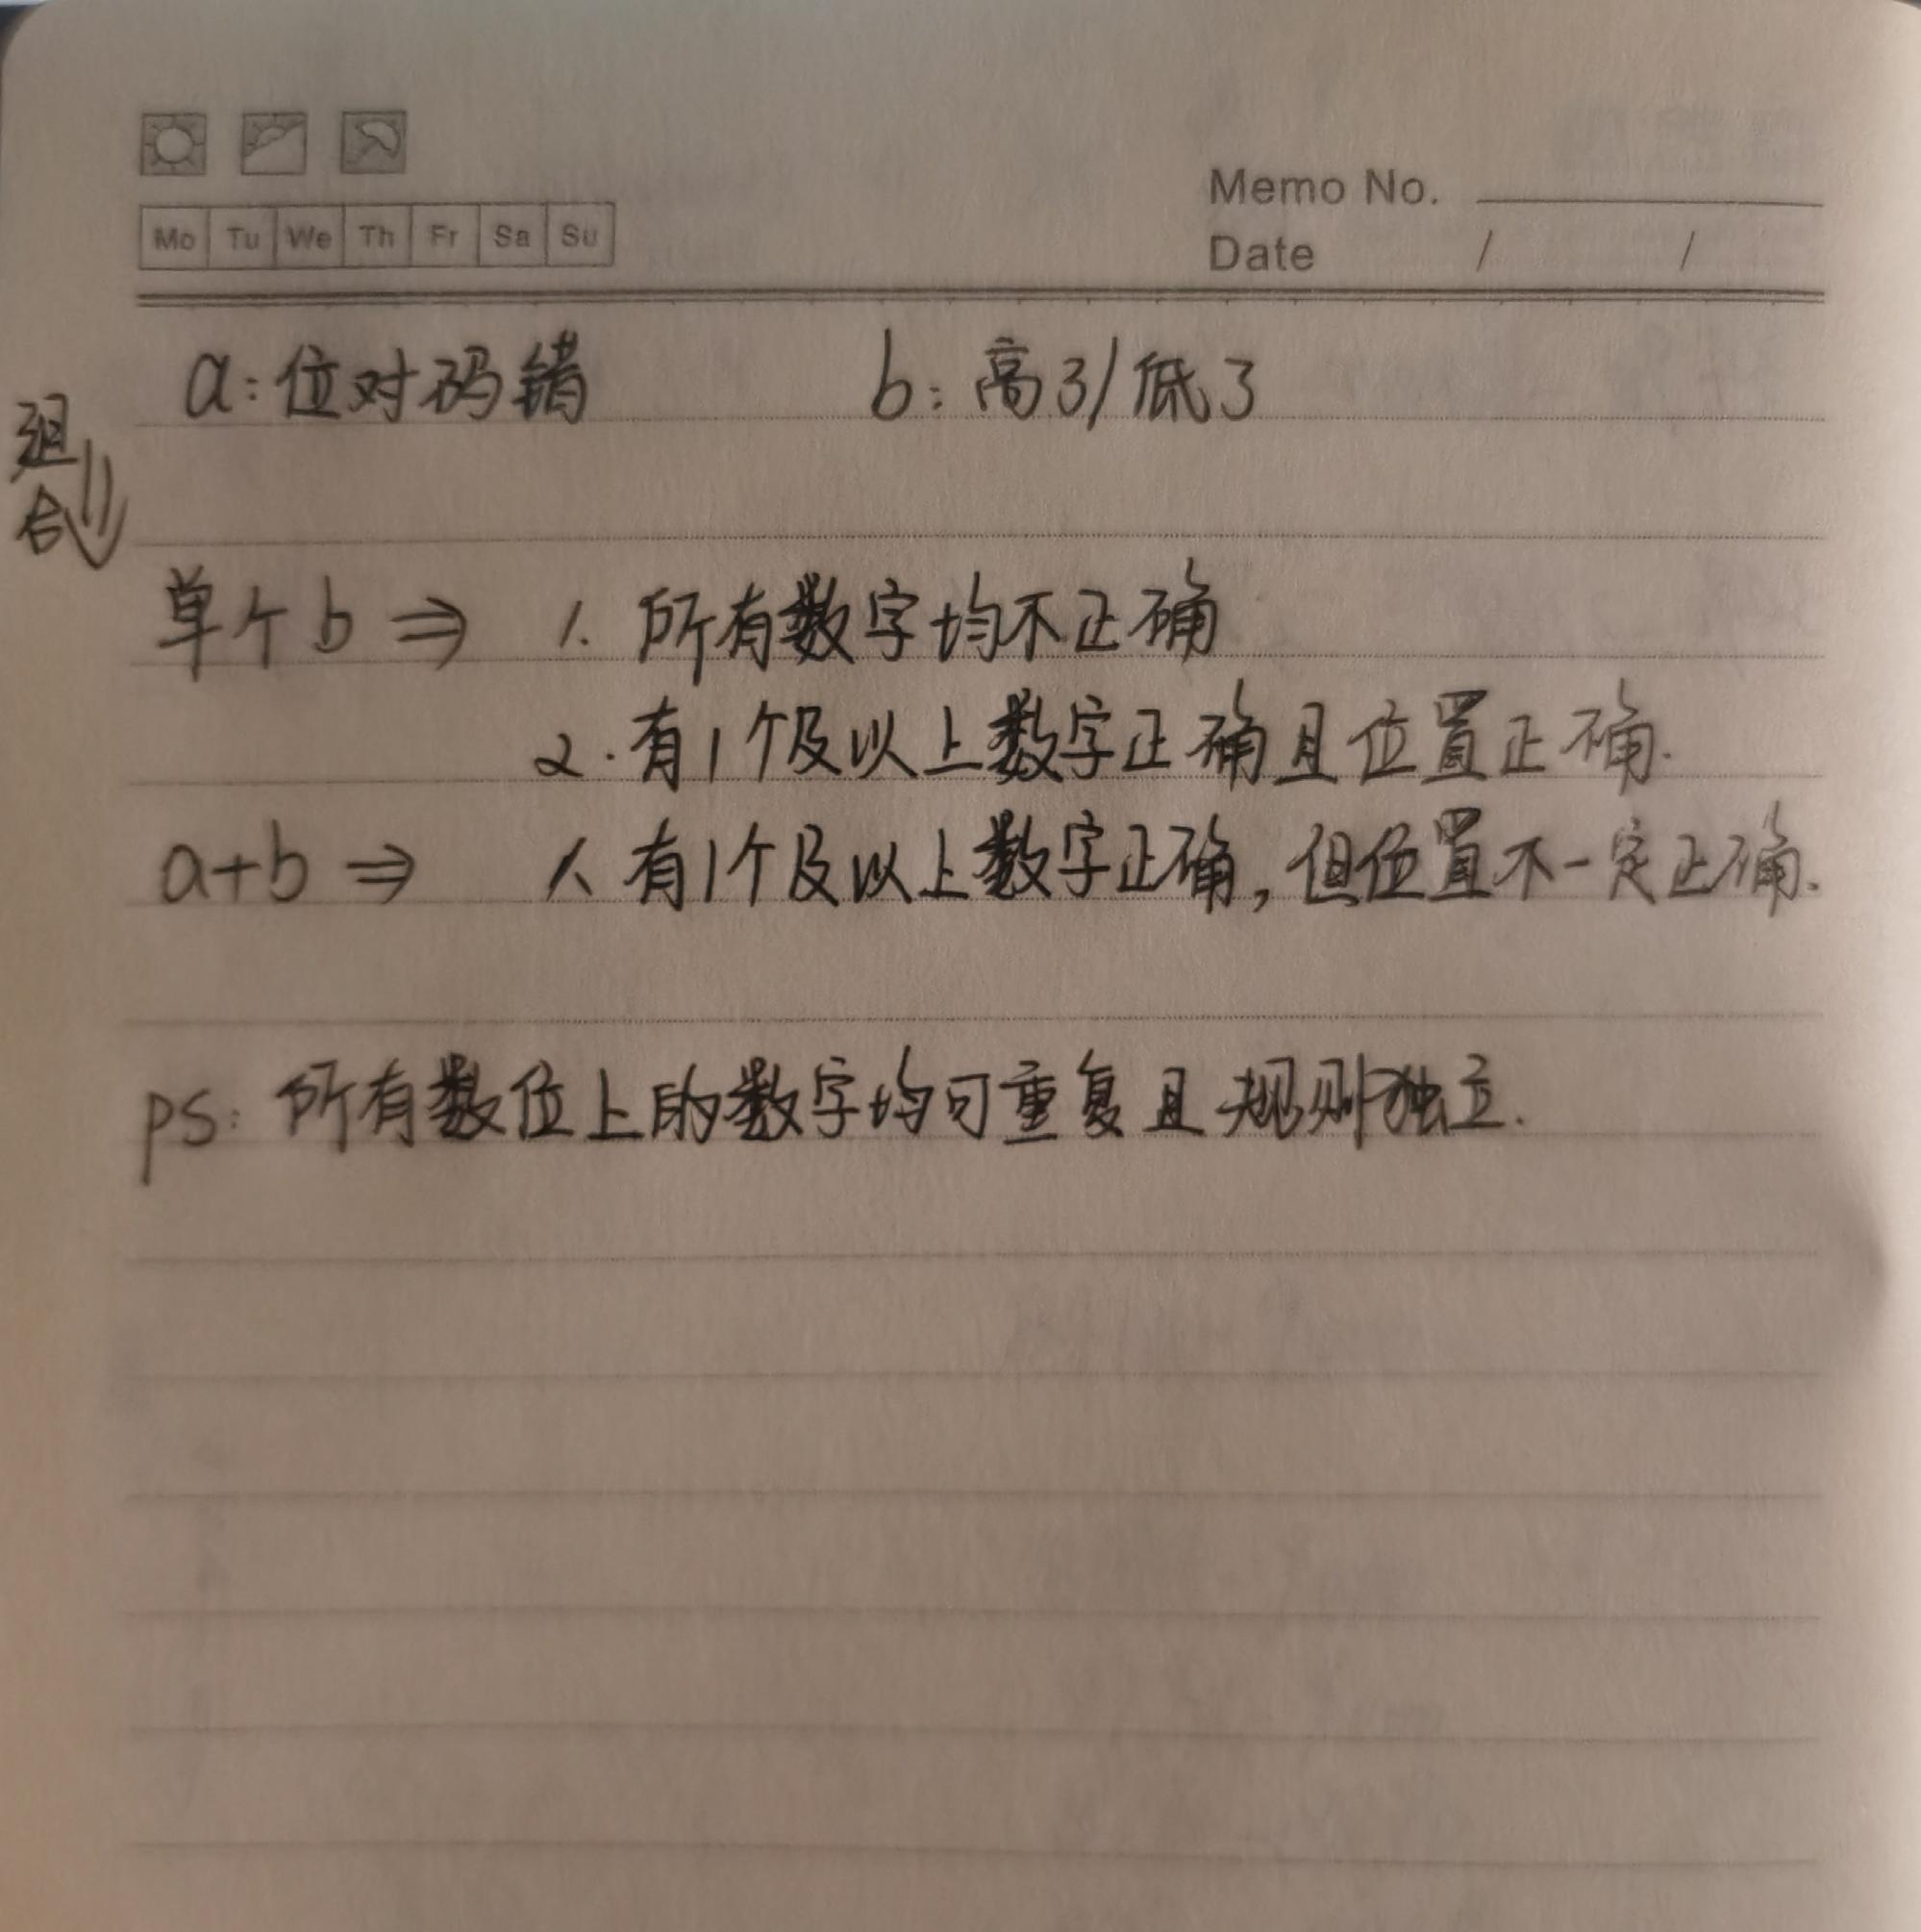 Memo No.
Mo Tu We Th Fr Sa Su
Date / /
a:位对码错 b:高了/低了
组
合
单个b⇒ 1.所有数字均不正确
2.有1个及以上数字正确且位置正确.
a+b⇒ 1.有1个及以上数字正确,但位置不一定正确.
ps:所有数位上的数字均可重复且规则独立.